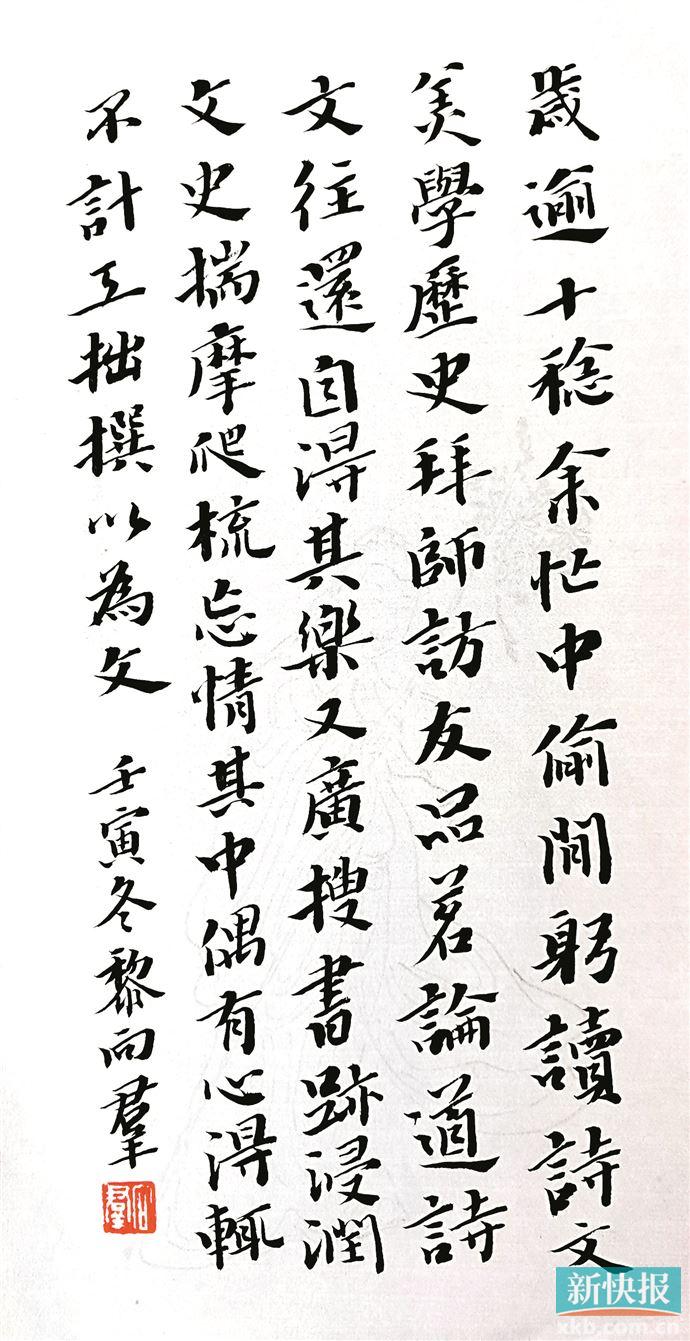 歲逾十稔余忙中偷閒躬讀詩文
美學歷史拜師訪友品茗論道詩
文往還自得其樂又廣搜書跡浸潤
文史揣摩爬梳忘情其中偶有心得輒
不計工拙撰以為文
壬寅冬黎向羣
向羣
新快报
xkb.com.cn